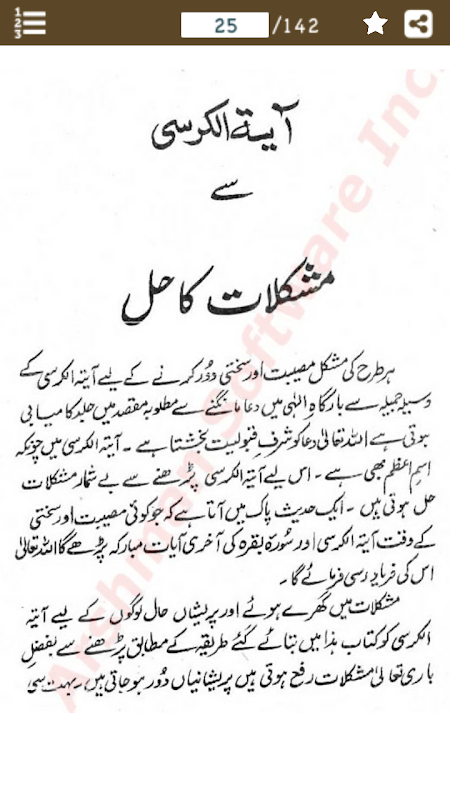 1
2
3
25 /142
آیۃ الکرسی
سے
مشکلات کا حل
ہر طرح کی مشکل مصیبت اور سختی دُور کرنے کے لیے آیتہ الکرسی کے
وسیلہ جمیلہ سے بارگاہِ الٰہی میں دعا مانگنے سے مطلوبہ مقصد میں جلد کامیابی
ہوتی ہے اللہ تعالیٰ دعا کو شرفِ قبولیت بخشتا ہے ۔ آیتہ الکرسی میں چونکہ
اسمِ اعظم بھی ہے ۔ اس لیے آیتہ الکرسی پڑھنے سے بے شمار مشکلات
حل ہوتی ہیں ۔ ایک حدیث پاک میں آتا ہے کہ جو کوئی مصیبت اور سختی
کے وقت آیتہ الکرسی اور سُورۃ بقرہ کی آخری آیات مبارکہ پڑھے گا اللہ تعالیٰ
اس کی فریاد رسی فرمائے گا ۔
مشکلات میں گھرے ہوئے اور پریشاں حال لوگوں کے لیے آیتہ
الکرسی کو کتاب ہذا میں بتائے گئے طریقہ کے مطابق پڑھنے سے بفضلِ
باری تعالیٰ مشکلات رفع ہوتی ہیں پریشانیاں دُور ہو جاتی ہیں، بہت سی
Arshman Software Inc